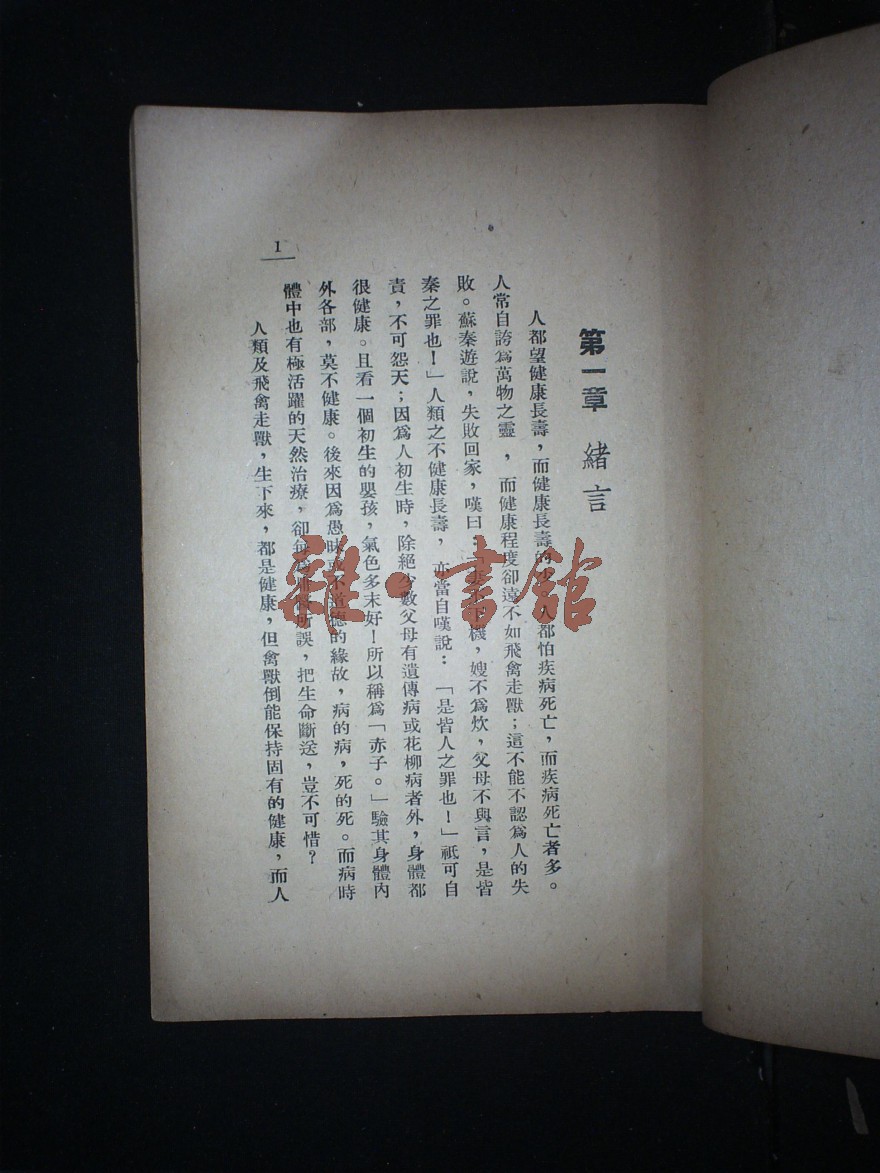 第一章 緒言
人都望健康長壽，而健康長壽的 人都怕疾病死亡，而疾病死亡者多。
人常自誇爲萬物之靈，而健康程度卻遠不如飛禽走獸；這不能不認爲人的失
敗。蘇秦遊說，失敗回家，嘆曰：「 機，嫂不爲炊，父母不與言，是皆
秦之罪也！」人類之不健康長壽，亦當自嘆說：「是皆人之罪也！」祇可自
責，不可怨天；因爲人初生時，除絕少數父母有遺傳病或花柳病者外，身體都
很健康。且看一個初生的嬰孩，氣色多末好！所以稱爲「赤子。」驗其身體內
外各部，莫不健康。後來因爲愚昧或不道德的緣故，病的病，死的死。而病時
體中也有極活躍的天然治療，卻每 所誤，把生命斷送，豈不可惜？
人類及飛禽走獸，生下來，都是健康，但禽獸倒能保持固有的健康，而人
1
雜·書館